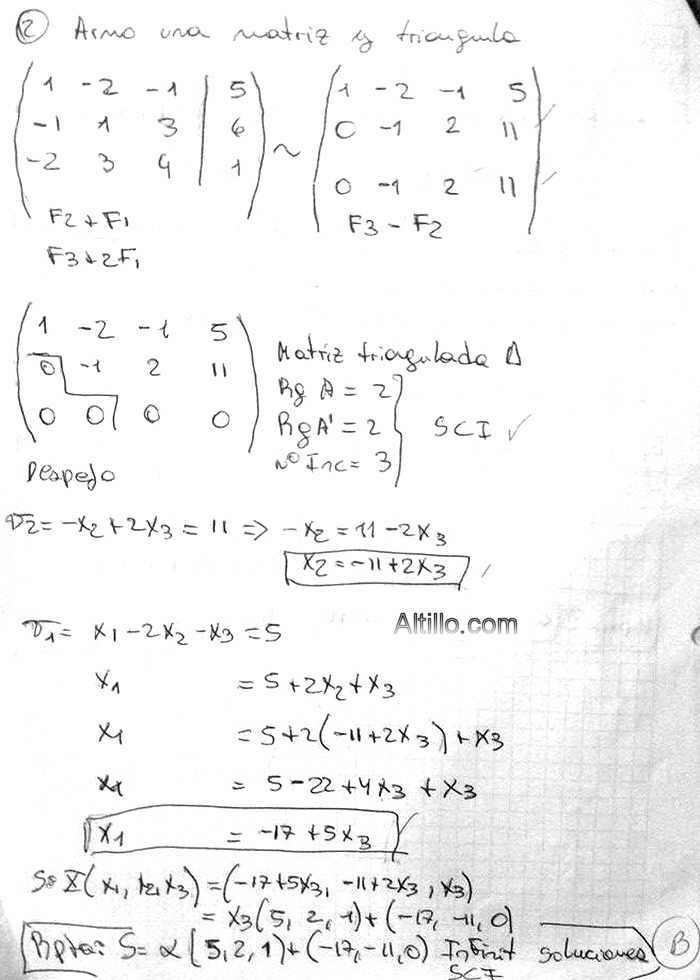 2 Armo una matriz y triangulo
1 -2 -1 | 5
-1 1 3 | 6
-2 3 4 | 1
F2 + F1
F3 + 2F1
~
1 -2 -1 5
0 -1 2 11
0 -1 2 11
F3 - F2
1 -2 -1 5
0 -1 2 11
0 0 0 0
Matriz triagulada Δ
Rg A = 2
Rg A' = 2
nº Inc = 3
SCI ✓
Despejo
= -x2 + 2x3 = 11 => -x2 = 11 - 2x3
x2 = -11 + 2x3
= x1 - 2x2 - x3 = 5
Altillo.com
x1 = 5 + 2x2 + x3
x1 = 5 + 2(-11 + 2x3) + x3
x1 = 5 - 22 + 4x3 + x3
x1 = -17 + 5x3
S= X(x1, x2, x3) = (-17 + 5x3, -11 + 2x3, x3)
= x3(5, 2, 1) + (-17, -11, 0)
Rpta: S= α(5, 2, 1) + (-17, -11, 0) Infinit soluciones B
SCI